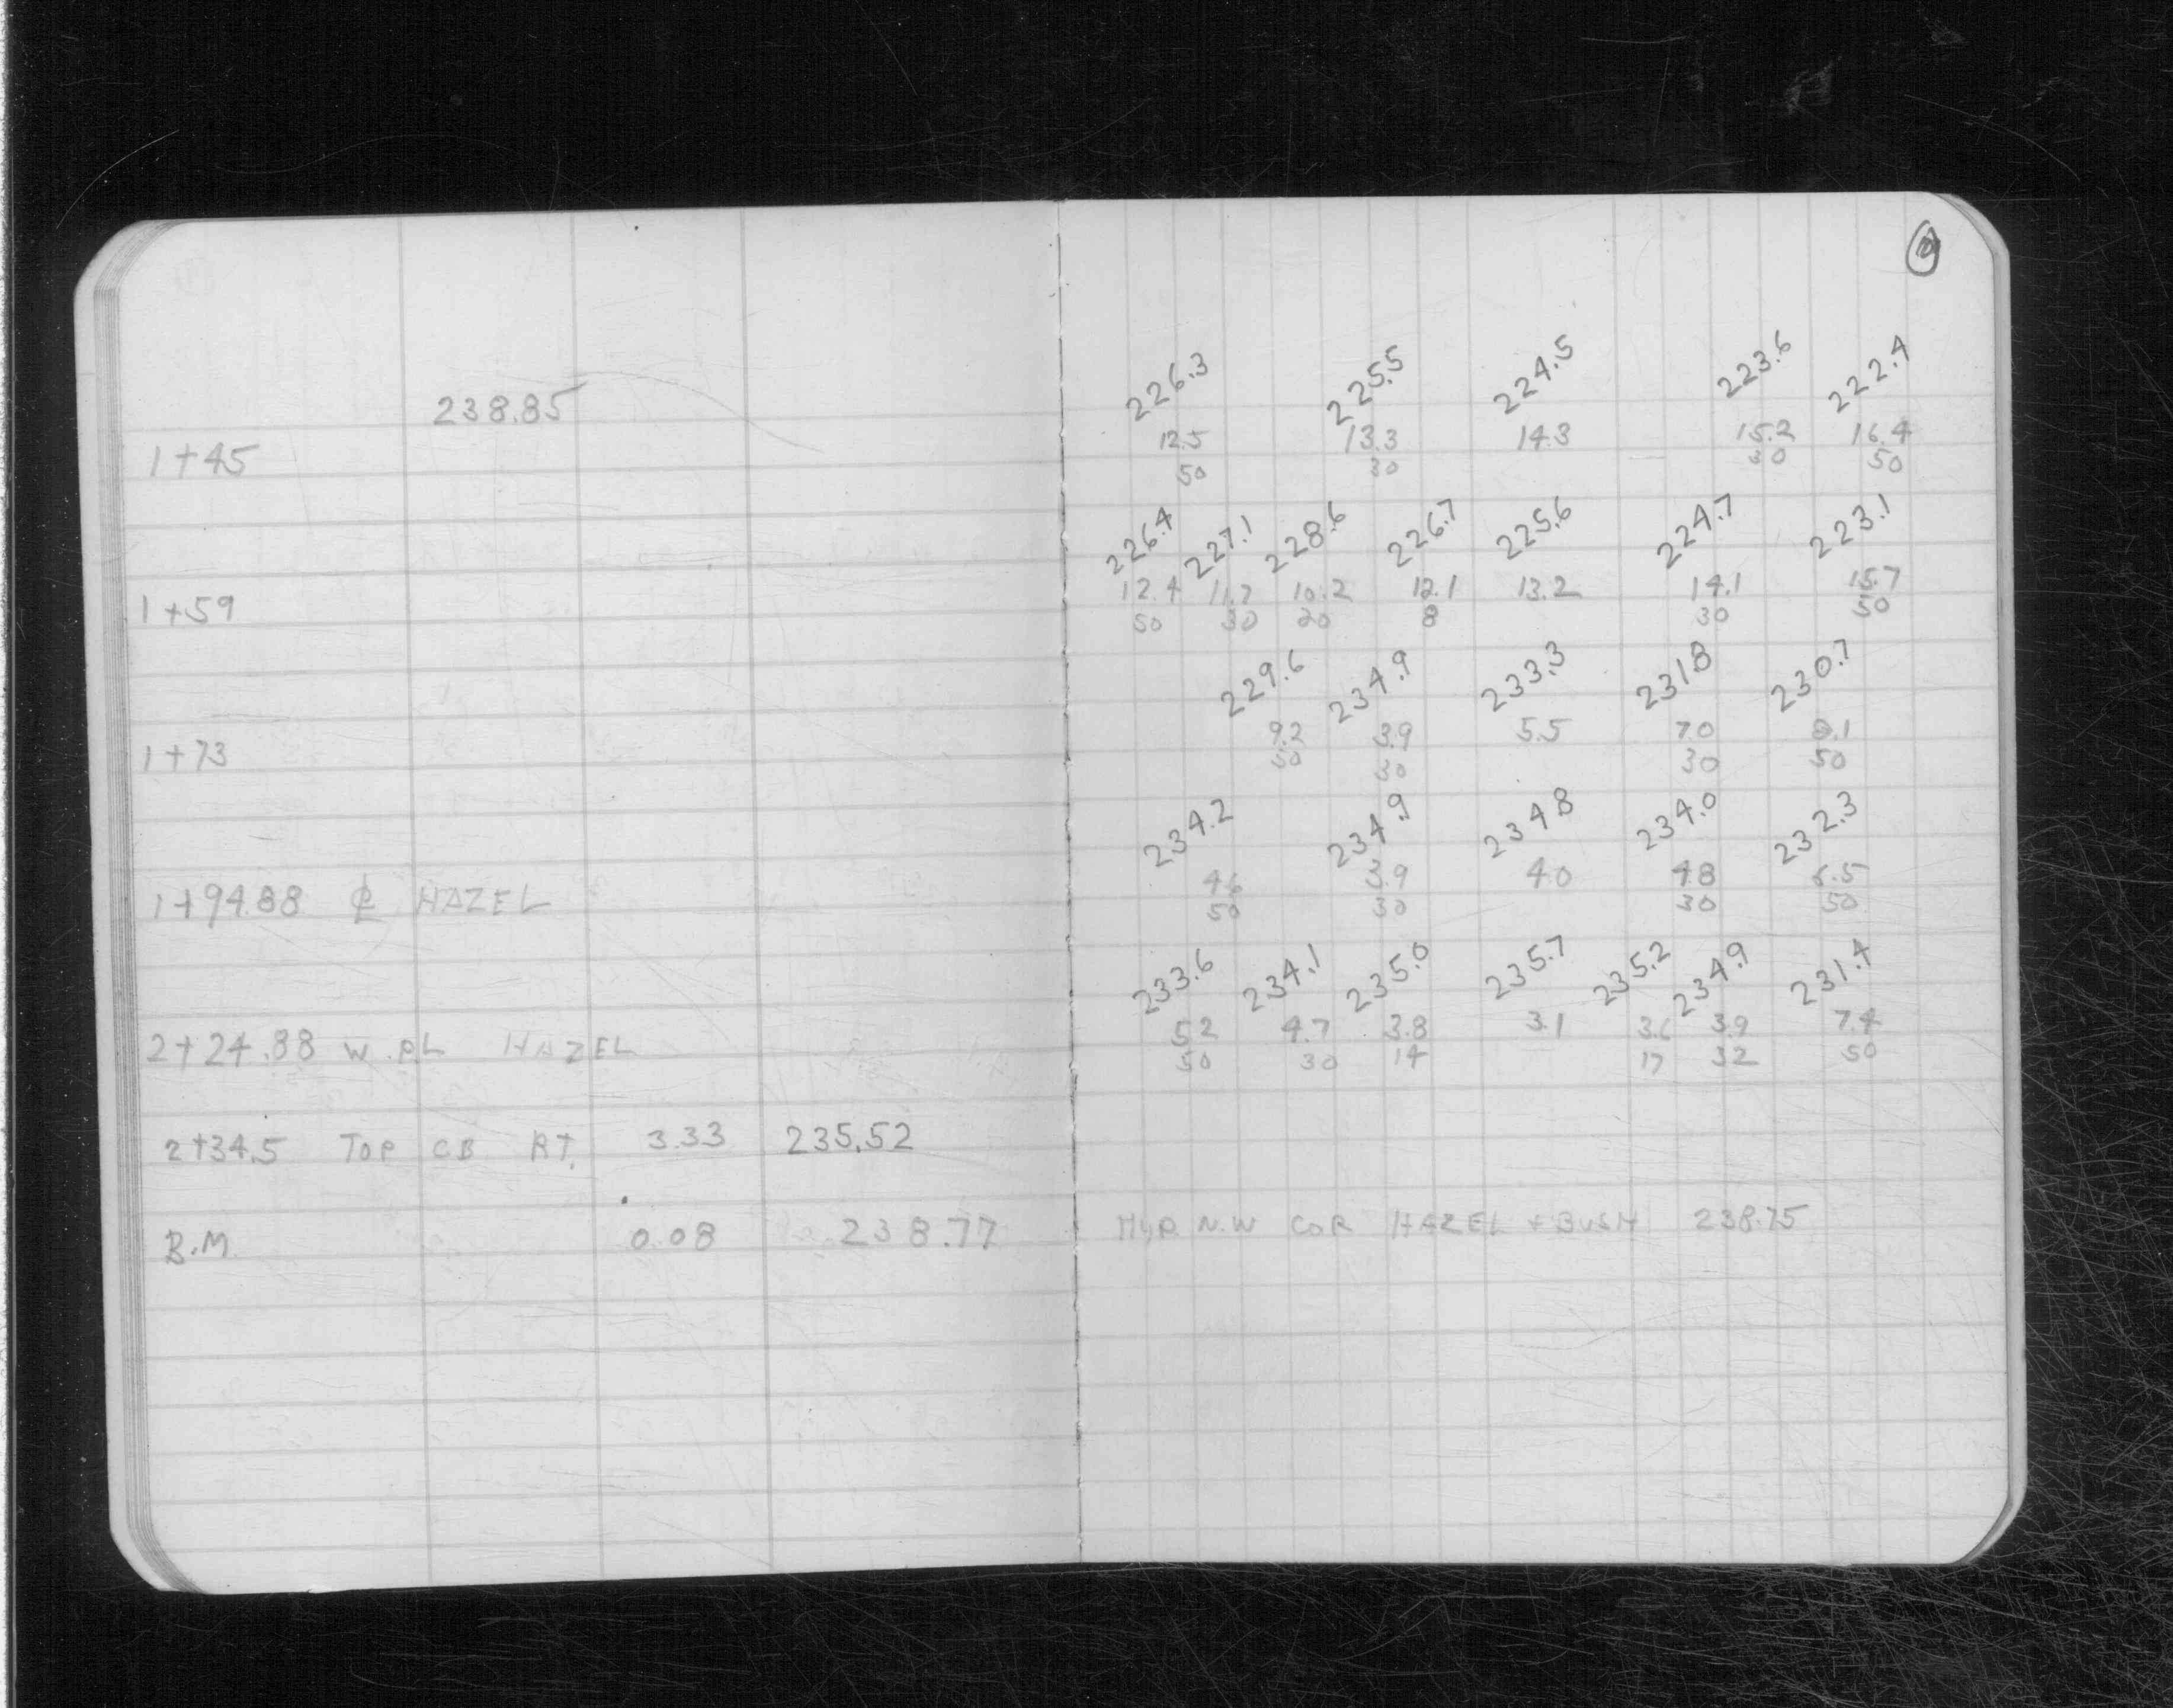 238.85
1+45
1+59
1+73
1+94.88 ⅊ HAZEL
2+24.88 W.PL HAZEL
2+34.5 TOP CB RT. 3.33 235.52
B.M. 0.08 238.77
226.3 225.5 224.5 223.6 222.4
12.5 13.3 14.3 15.2 16.4
50 30 30 50
226.4 227.1 228.6 226.7 225.6 224.7 223.1
12.4 11.7 10.2 12.1 13.2 14.1 15.7
50 30 20 8 30 50
229.6 234.9 233.3 231.8 230.7
9.2 3.9 5.5 7.0 8.1
50 30 30 50
234.2 234.9 234.8 234.0 232.3
4.6 3.9 4.0 4.8 6.5
50 30 30 50
233.6 234.1 235.0 235.7 235.2 234.9 231.4
5.2 4.7 3.8 3.1 3.6 3.9 7.4
50 30 14 17 32 50
Hyd. N.W COR HAZEL + BUSH 238.75